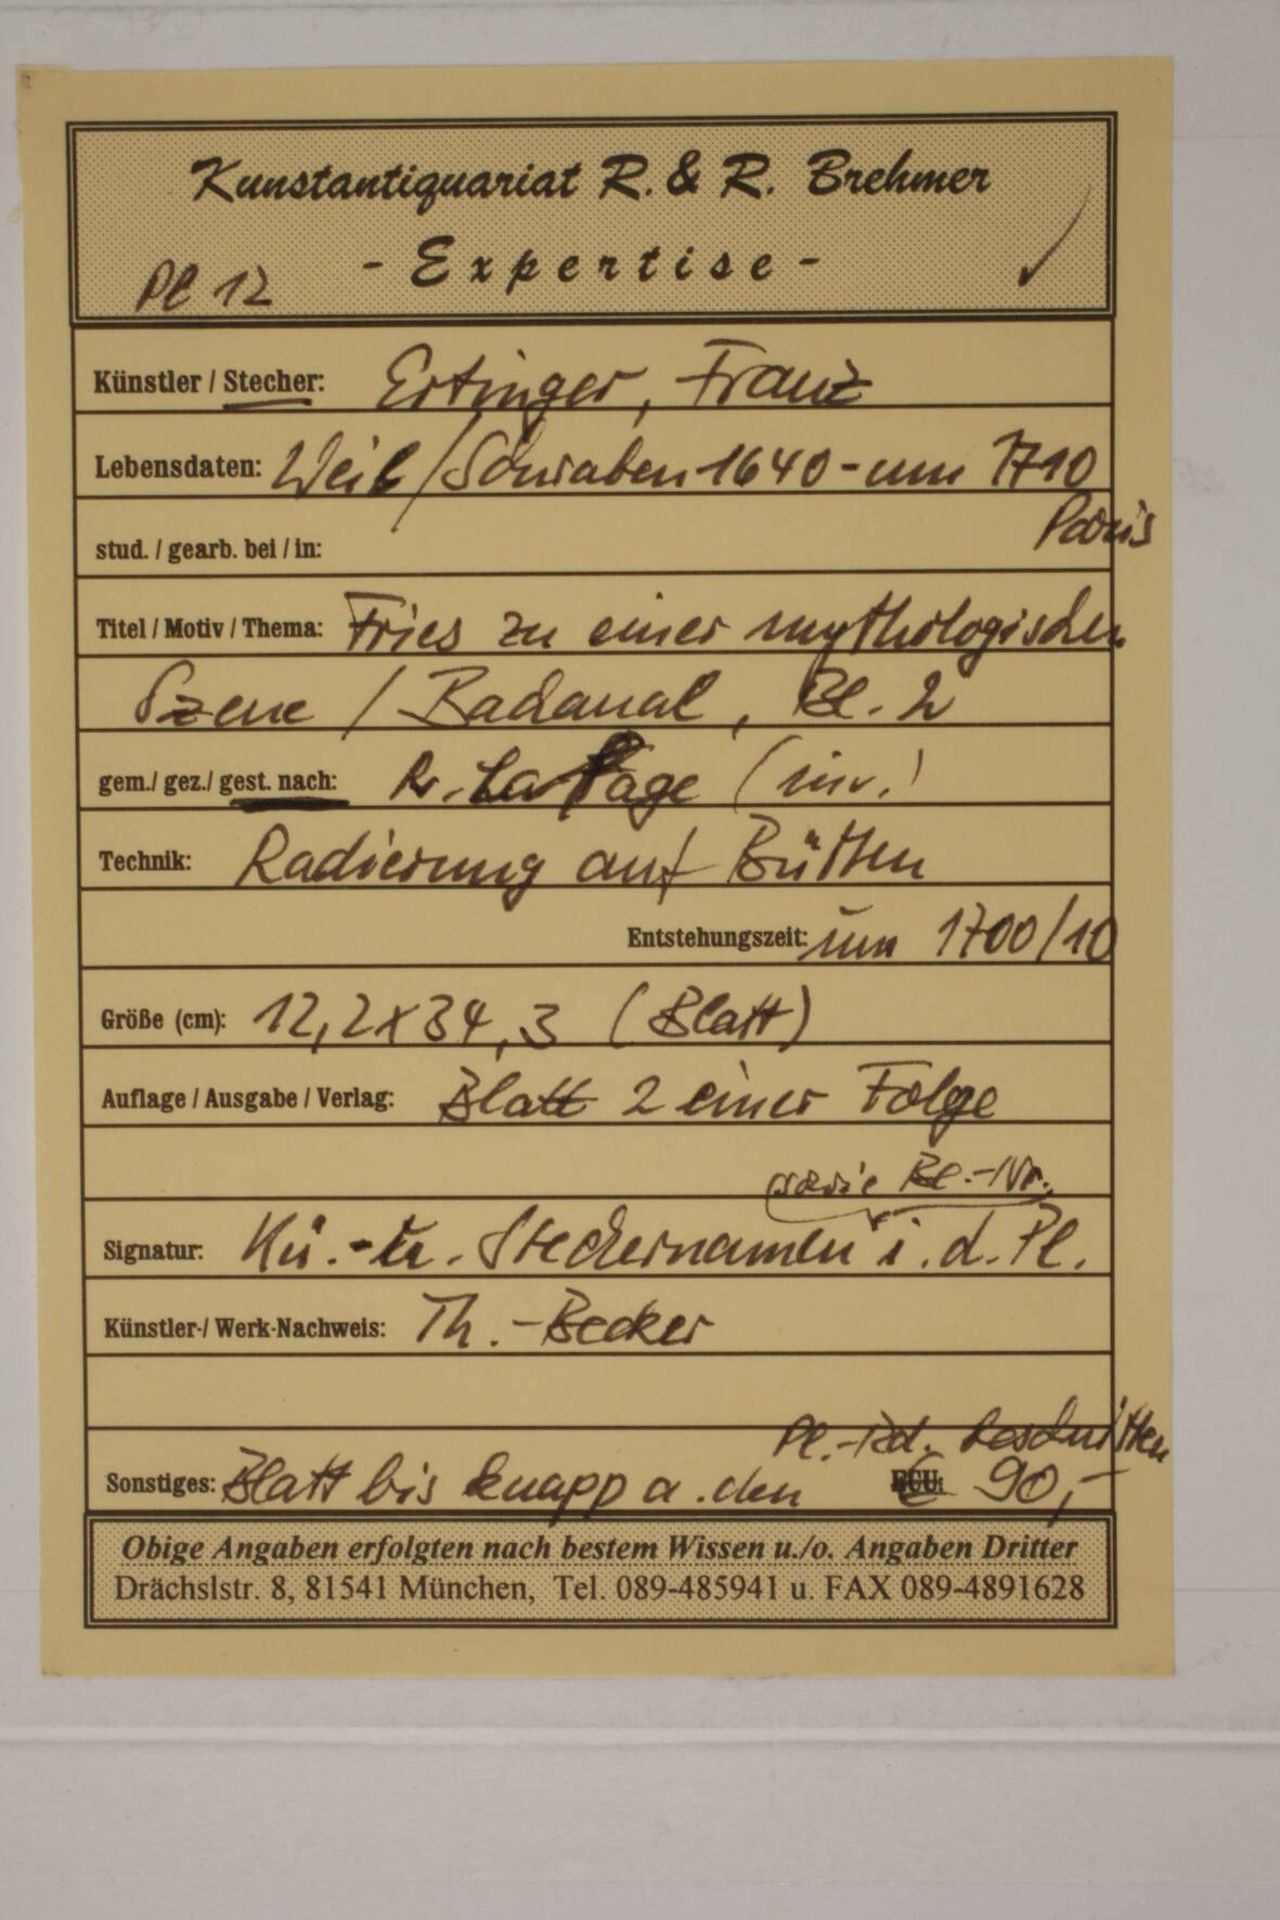 Kunstantiquariat R. & R. Brehmer
- Expertise -
Pl 12
Künstler / Stecher: Ertinger, Franz
Lebensdaten: Weil / Schwaben 1640 - um 1710
Paris
stud. / gearb. bei / in:
Titel / Motiv / Thema: Fries zu einer mythologischen
Szene / Bachanal, Bl. 2
gem./ gez./ gest. nach: R. La Fage (inv.)
Technik: Radierung auf Bütten
Entstehungszeit: um 1700/10
Größe (cm): 12,2 x 34,3 (Blatt)
Auflage / Ausgabe / Verlag: Blatt 2 einer Folge
sowie Bl.-Nr.
Signatur: Kü.-u. Stechernamen i. d. Pl.
Künstler-/ Werk-Nachweis: Th.-Becker
Pl.-Rd. beschnitten
Sonstiges: Blatt bis knapp a. den € 90,-
Obige Angaben erfolgten nach bestem Wissen u./o. Angaben Dritter
Drächslstr. 8, 81541 München, Tel. 089-485941 u. FAX 089-4891628